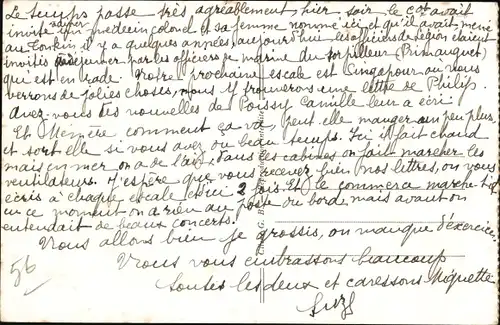 Le temps passe très agréablement, hier soir le Ct avait
invité un médecin colonel et sa femme nommé ici et qu'il avait mené
au Tonkin il y a quelques années, aujourd'hui les officiers de légion étaient
invités à déjeuner par les officiers de marine du torpilleur (Primauguet)
qui est en rade. Notre prochaine escale est Singapour où nous
verrons de jolies choses, nous y trouverons une lettre de Philip.
Avez-vous des nouvelles de Poissy Camille leur a écrit
Et Mémère, comment ça va, peut elle manger un peu plus,
et sort elle si vous avez du beau temps. Ici il fait chaud
mais en mer on a de l'air, dans les cabines on fait marcher les
ventilateurs. J'espère que vous recevez bien nos lettres, on vous
écris à chaque escale et ici 2 fois. Et le commerce marche-t-il
en ce moment on a rien au poste du bord, mais avant on
entendait de beaux concerts.
Nous allons bien je grossis, on manque d'exercice.
Nous vous embrassons beaucoup
toutes les deux et caressons Miquette
Suz
56